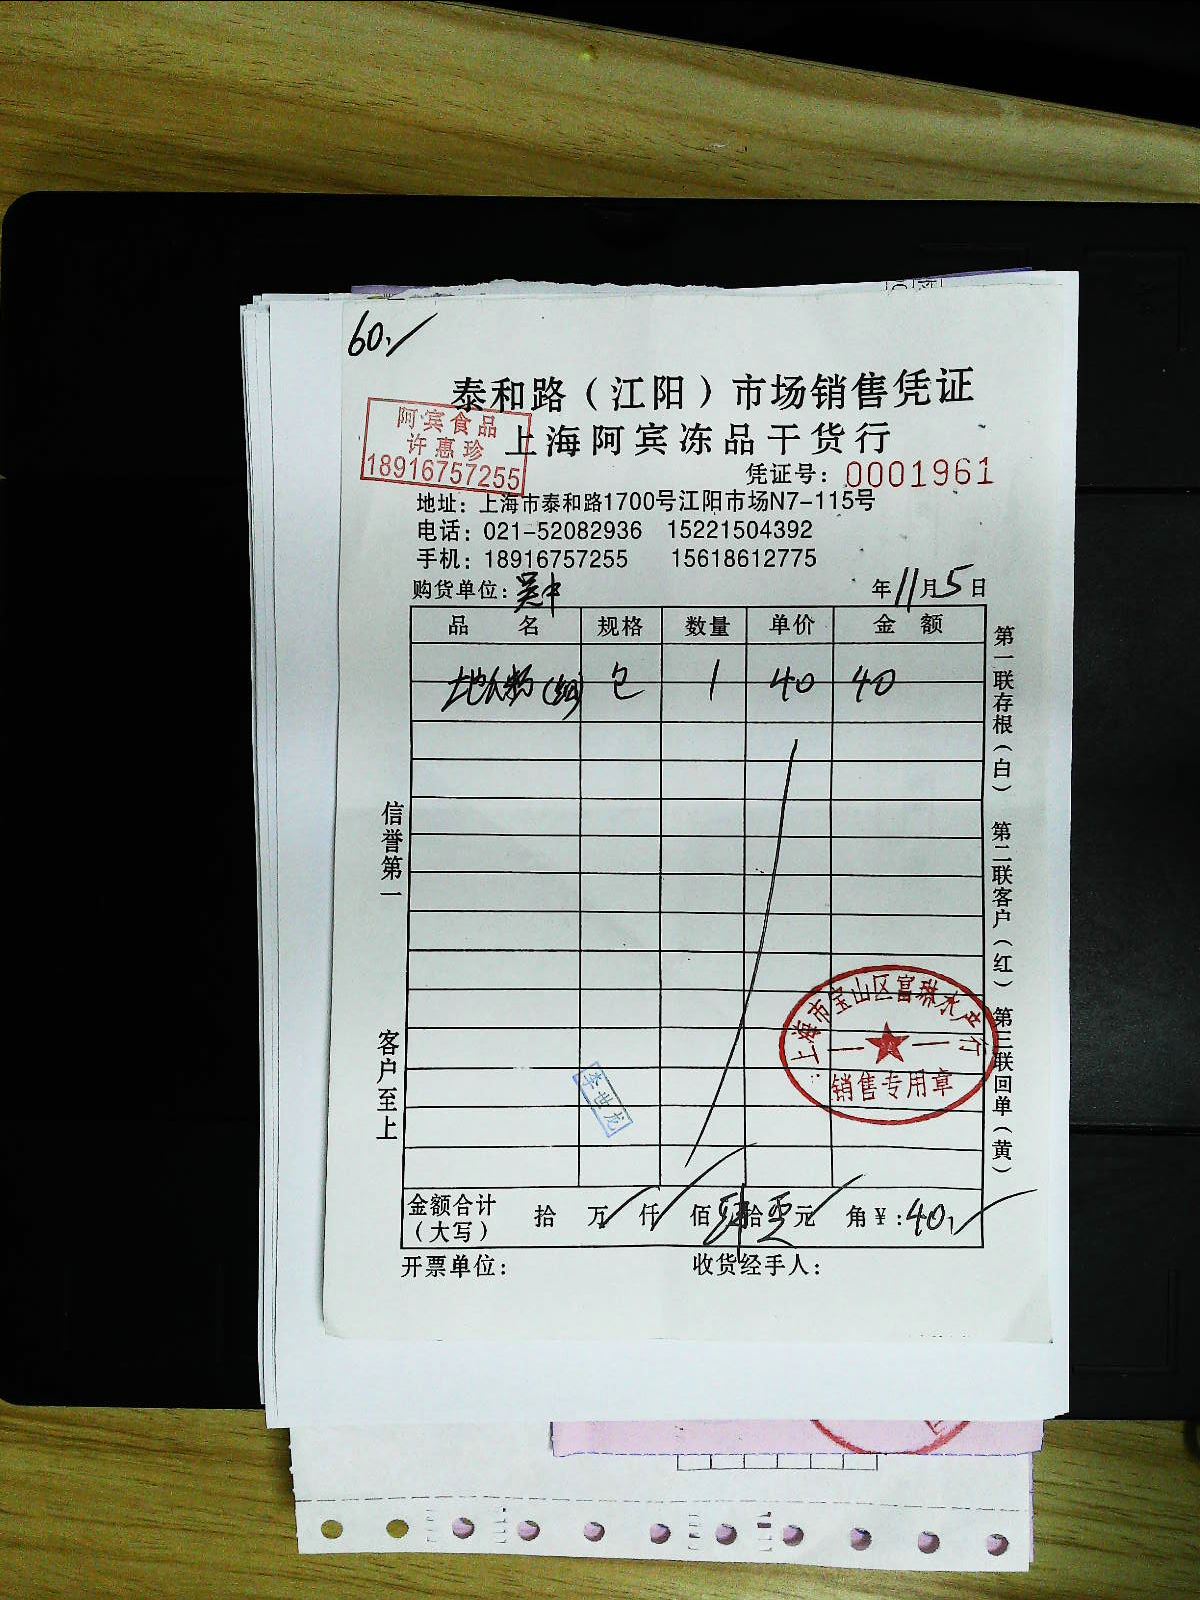 60.
泰和路（江阳）市场销售凭证
阿宾食品
许惠珍
18916757255
上海阿宾冻品干货行
凭证号：0001961
地址：上海市泰和路1700号江阳市场N7-115号
电话：021-52082936 15221504392
手机：18916757255 15618612775
购货单位：吴中 年11月5日
品 名 规格 数量 单价 金 额
包 1 40 40
信誉第一
客户至上
第一联存根（白） 第二联客户（红） 第三联回单（黄）
上海市宝山区富琳水产行
销售专用章
李世龙
金额合计（大写） 拾 万 仟 佰 肆拾 零元 角￥：40.
开票单位： 收货经手人：